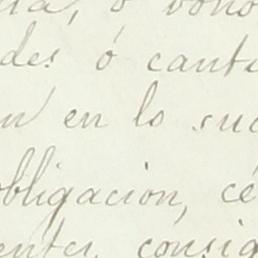 ó bono
des ó canti
n en lo suc
obligacion, cé
entes, consig